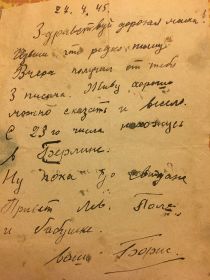 24. 4. 45.
Здравствуй дорогая мама!
что редко пишу.
Вчера получил от тебя
3 письма. Живу хорошо
можно сказать и весело.
С 23 го числа нахожусь
в Берлине.
Ну пока до свиданя
Привет Лёв, Поле
и бабушке.
Ваш Борис.